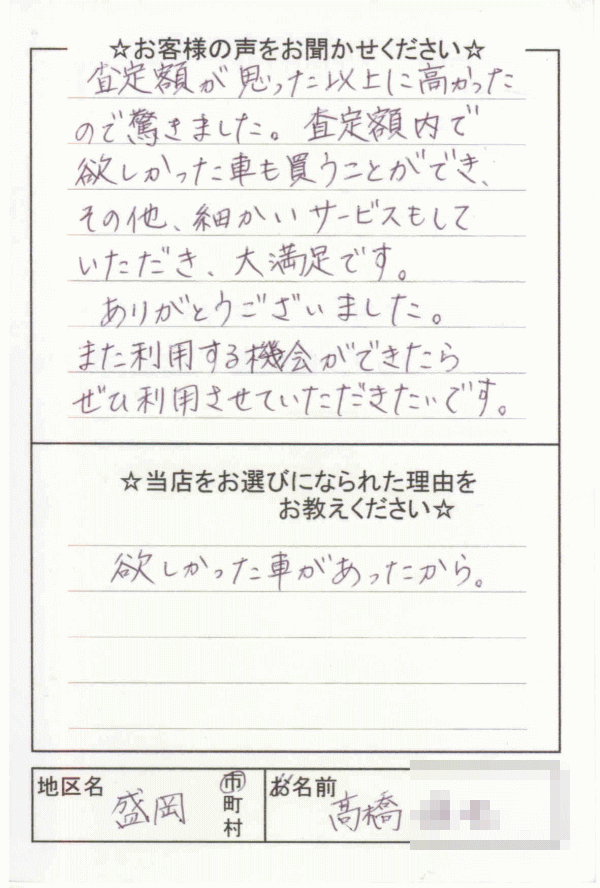 ☆お客様の声をお聞かせください☆
査定額が思った以上に高かった
ので驚きました。査定額内で
欲しかった車も買うことができ、
その他、細かいサービスもして
いただき、大満足です。
ありがとうございました。
また利用する機会ができたら
ぜひ利用させていただきたいです。
☆当店をお選びになられた理由を
お教えください☆
欲しかった車があったから。
地区名 盛岡 市町村 お名前 高橋